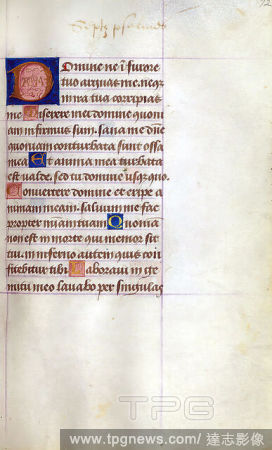 Domine ne ī furore
tuo arguas me. neq;
in ira tua corripias
me Miserere mei domine quoni
am infirmus sum. sana me dñe
quoniam conturbata sunt ossa
mea Et anima mea turbata
est valde. sed tu domine usque quo.
Convertere domine et eripe a
nimam meam. salvum me fac
propter miām tuam Quoniā
non est in morte qui memor sit
tui. in inferno autem quis con
fitebitur tibi Laboravi in ge
mitu meo lavabo per singulas
TPG
www.tpgnews.com / 達志影像